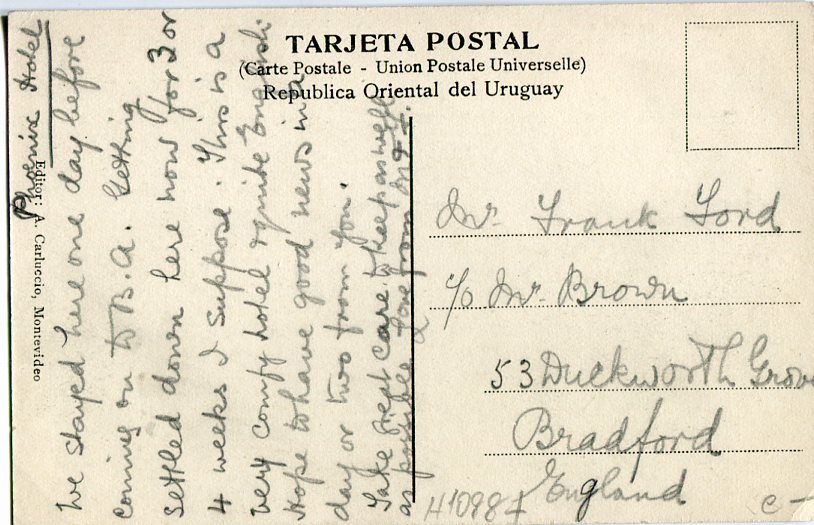 TARJETA POSTAL
(Carte Postale - Union Postale Universelle)
Republica Oriental del Uruguay
Editor: A. Carluccio, Montevideo
Phoenix Hotel
We stayed here one day before
coming on to B.A. Getting
settled down here now for 3 or
4 weeks I suppose. This is a
very comfy hotel & quite English
Hope to have good news in a
day or two from you.
Take great care to keep as well
as possible Love from
Mr. Frank Ford
c/o Mr. Brown
53 Duckworth Grove
Bradford
England
H1098
c-